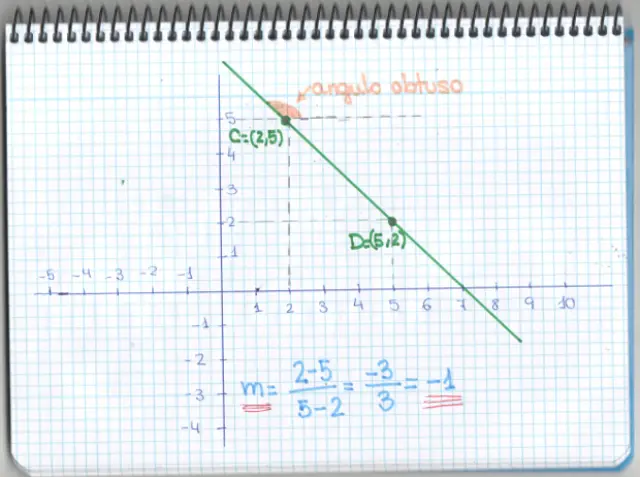 angulo obtuso
5
C=(2,5)
4
3
2
D=(5,2)
1
-5 -4 -3 -2 -1
1 2 3 4 5 6 7 8 9 10
-1
-2
-3
-4
m = 2-5 / 5-2 = -3 / 3 = -1